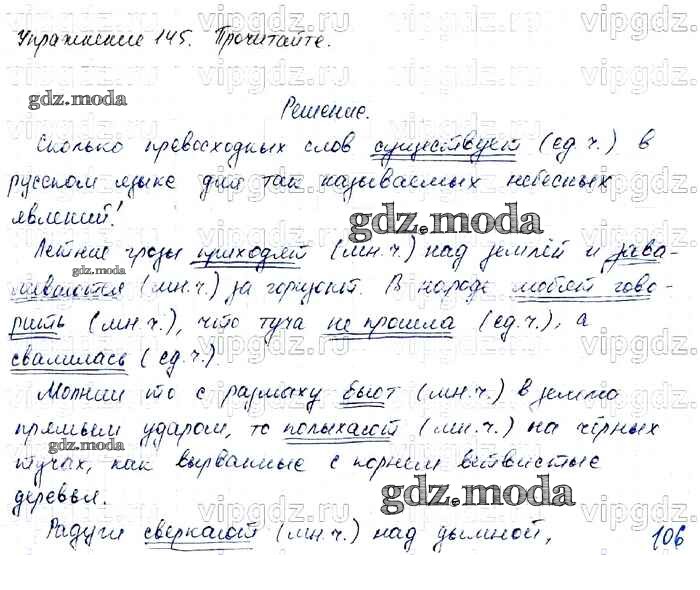 Упражнение 145. Прочитайте.
Решение.
Сколько превосходных слов существует (ед.ч.) в
русском языке для так называемых небесных
явлений!
Летние грозы приходят (мн.ч.) над землёй и зава-
ливаются (мн.ч.) за горизонт. В народе любят гово-
рить (мн.ч.), что туча не прошла (ед.ч.), а
свалилась (ед.ч.).
Молнии то с размаху бьют (мн.ч.) в землю
прямым ударом, то полыхают (мн.ч.) на чёрных
тучах, как вырванные с корнем ветвистые
деревья.
Радуги сверкают (мн.ч.) над дымной,
106
gdz.moda
gdz.moda
gdz.moda
gdz.moda
gdz.moda
vipgdz.ru